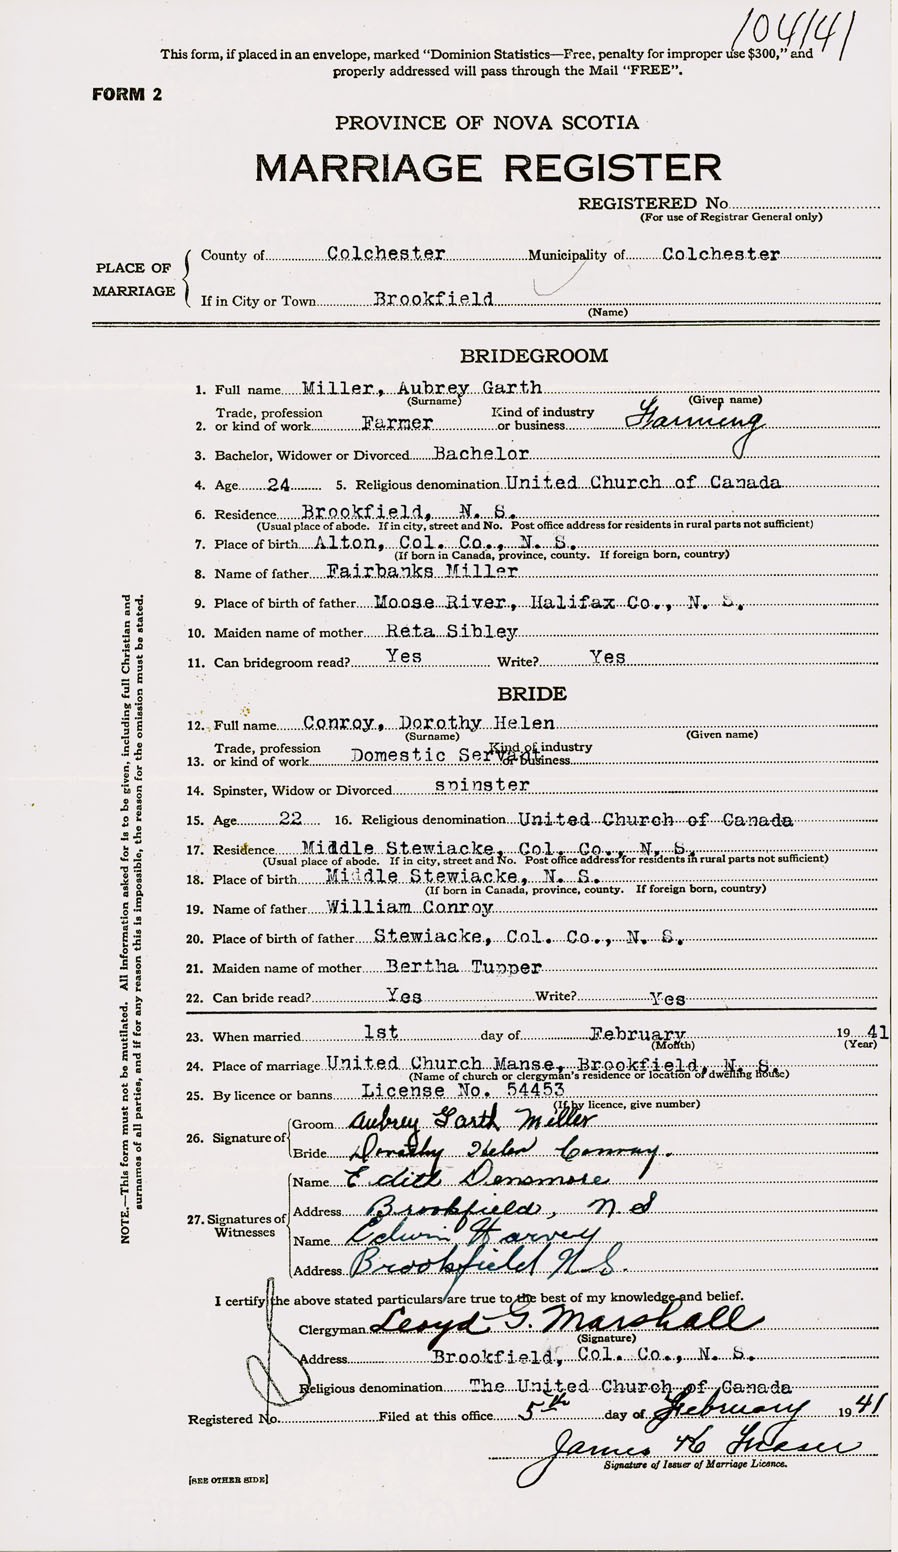 104141
This form, if placed in an envelope, marked "Dominion Statistics—Free, penalty for improper use $300," and
properly addressed will pass through the Mail "FREE".
FORM 2
PROVINCE OF NOVA SCOTIA
MARRIAGE REGISTER
REGISTERED No.
(For use of Registrar General only)
PLACE OF MARRIAGE
County of Colchester Municipality of Colchester
If in City or Town Brookfield
(Name)
BRIDEGROOM
1. Full name Miller, Aubrey Garth
(Surname) (Given name)
2. Trade, profession or kind of work Farmer Kind of industry or business Farming
3. Bachelor, Widower or Divorced Bachelor
4. Age 24 5. Religious denomination United Church of Canada
6. Residence Brookfield, N. S.
(Usual place of abode. If in city, street and No. Post office address for residents in rural parts not sufficient)
7. Place of birth Alton, Col. Co., N. S.
(If born in Canada, province, county. If foreign born, country)
8. Name of father Fairbanks Miller
9. Place of birth of father Moose River, Halifax Co., N. S.
10. Maiden name of mother Reta Sibley
11. Can bridegroom read? Yes Write? Yes
BRIDE
12. Full name Conroy, Dorothy Helen
(Surname) (Given name)
13. Trade, profession or kind of work Domestic Servant Kind of industry or business
14. Spinster, Widow or Divorced spinster
15. Age 22 16. Religious denomination United Church of Canada
17. Residence Middle Stewiacke, Col. Co., N. S.
(Usual place of abode. If in city, street and No. Post office address for residents in rural parts not sufficient)
18. Place of birth Middle Stewiacke, N. S.
(If born in Canada, province, county. If foreign born, country)
19. Name of father William Conroy
20. Place of birth of father Stewiacke, Col. Co., N. S.
21. Maiden name of mother Bertha Tupper
22. Can bride read? Yes Write? Yes
23. When married 1st day of February 1941
(Month) (Year)
24. Place of marriage United Church Manse, Brookfield, N. S.
(Name of church or clergyman's residence or location of dwelling house)
25. By licence or banns License No. 54453
(If by licence, give number)
26. Signature of Groom Aubrey Garth Miller
Bride Dorothy Helen Conroy.
27. Signatures of Witnesses Name Edith Densmore
Address Brookfield, N S
Name Edwin Harvey
Address Brookfield N S.
I certify the above stated particulars are true to the best of my knowledge and belief.
Clergyman Lloyd G. Marshall
(Signature)
Address Brookfield, Col. Co., N. S.
Religious denomination The United Church of Canada
Registered No. Filed at this office 5th day of February 1941
James K Fraser
Signature of Issuer of Marriage Licence.
[SEE OTHER SIDE]
NOTE.—This form must not be mutilated. All information asked for is to be given, including full Christian and
surnames of all parties, and if for any reason this is impossible, the reason for the omission must be stated.